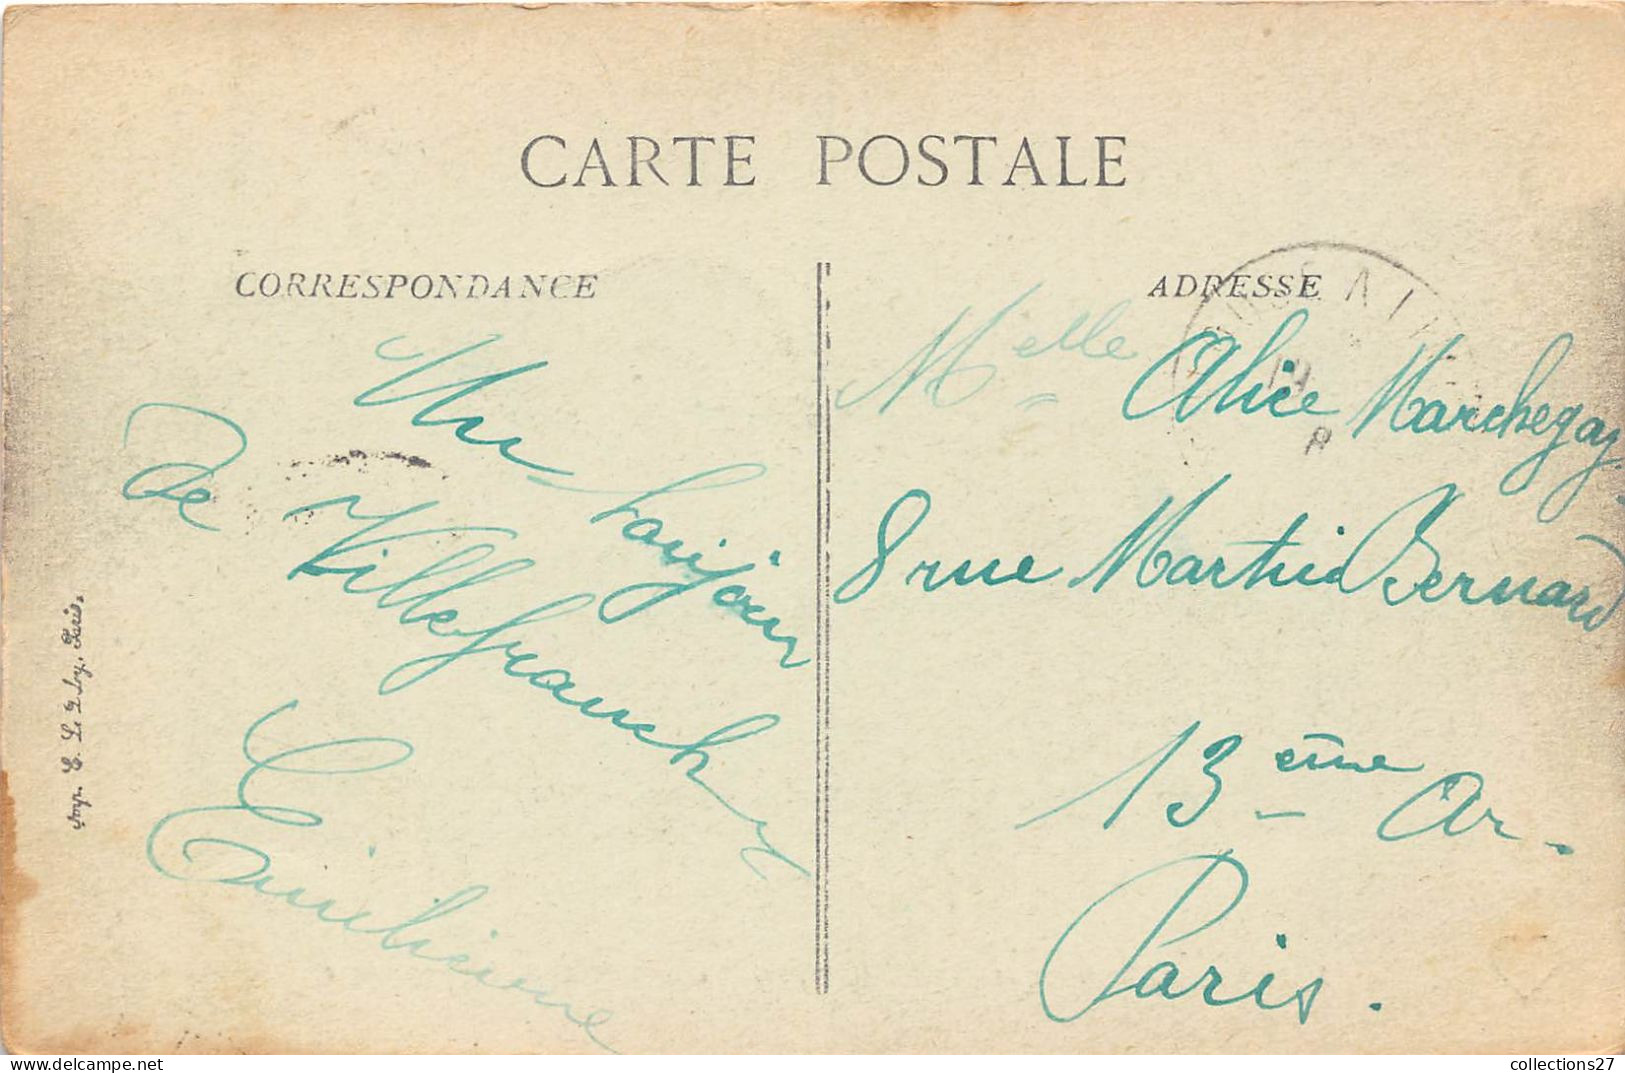 CARTE POSTALE
CORRESPONDANCE
Un bonjour
de Villefranche
Emilienne
Imp. E. Le Deley, Paris.
ADRESSE
Melle Alice Marchegay
8 rue Martin Bernard
13ème Ar.
Paris.
collections27